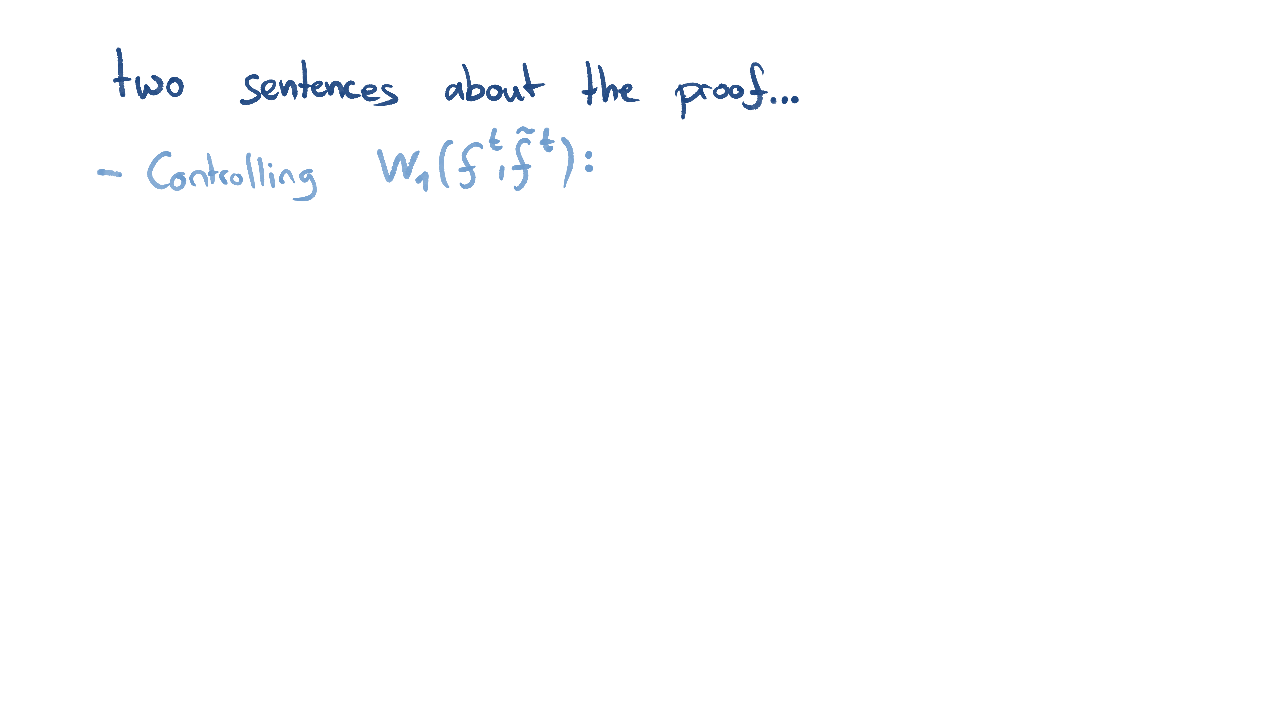 two sentences about the proof...
- Controlling W₁(fᵗ, f̃ᵗ):